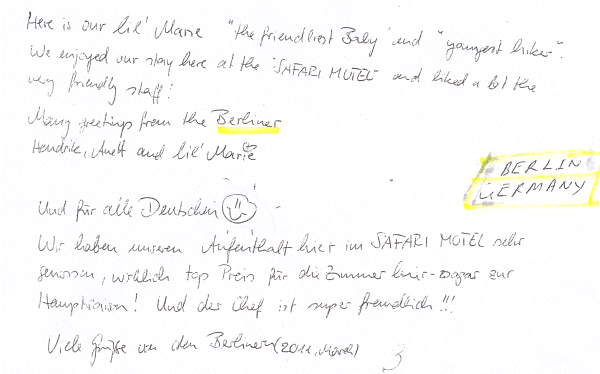 Here is our lil' Marie "the friendliest Baby" and "youngest hiker".
We enjoyed our stay here at the "SAFARI MOTEL" and liked a lot the
very friendly staff!
Many greetings from the Berliner
Hendrik, Anett and lil' Marie
BERLIN
GERMANY
Und für alle Deutschen
Wir haben unseren Aufenthalt hier im SAFARI MOTEL sehr
genossen, wirklich top Preis für die Zimmer hier - sogar zur
Hauptsaison! Und der Chef ist super freundlich!!!
Viele Grüße von den Berlinern (2012, March)
3